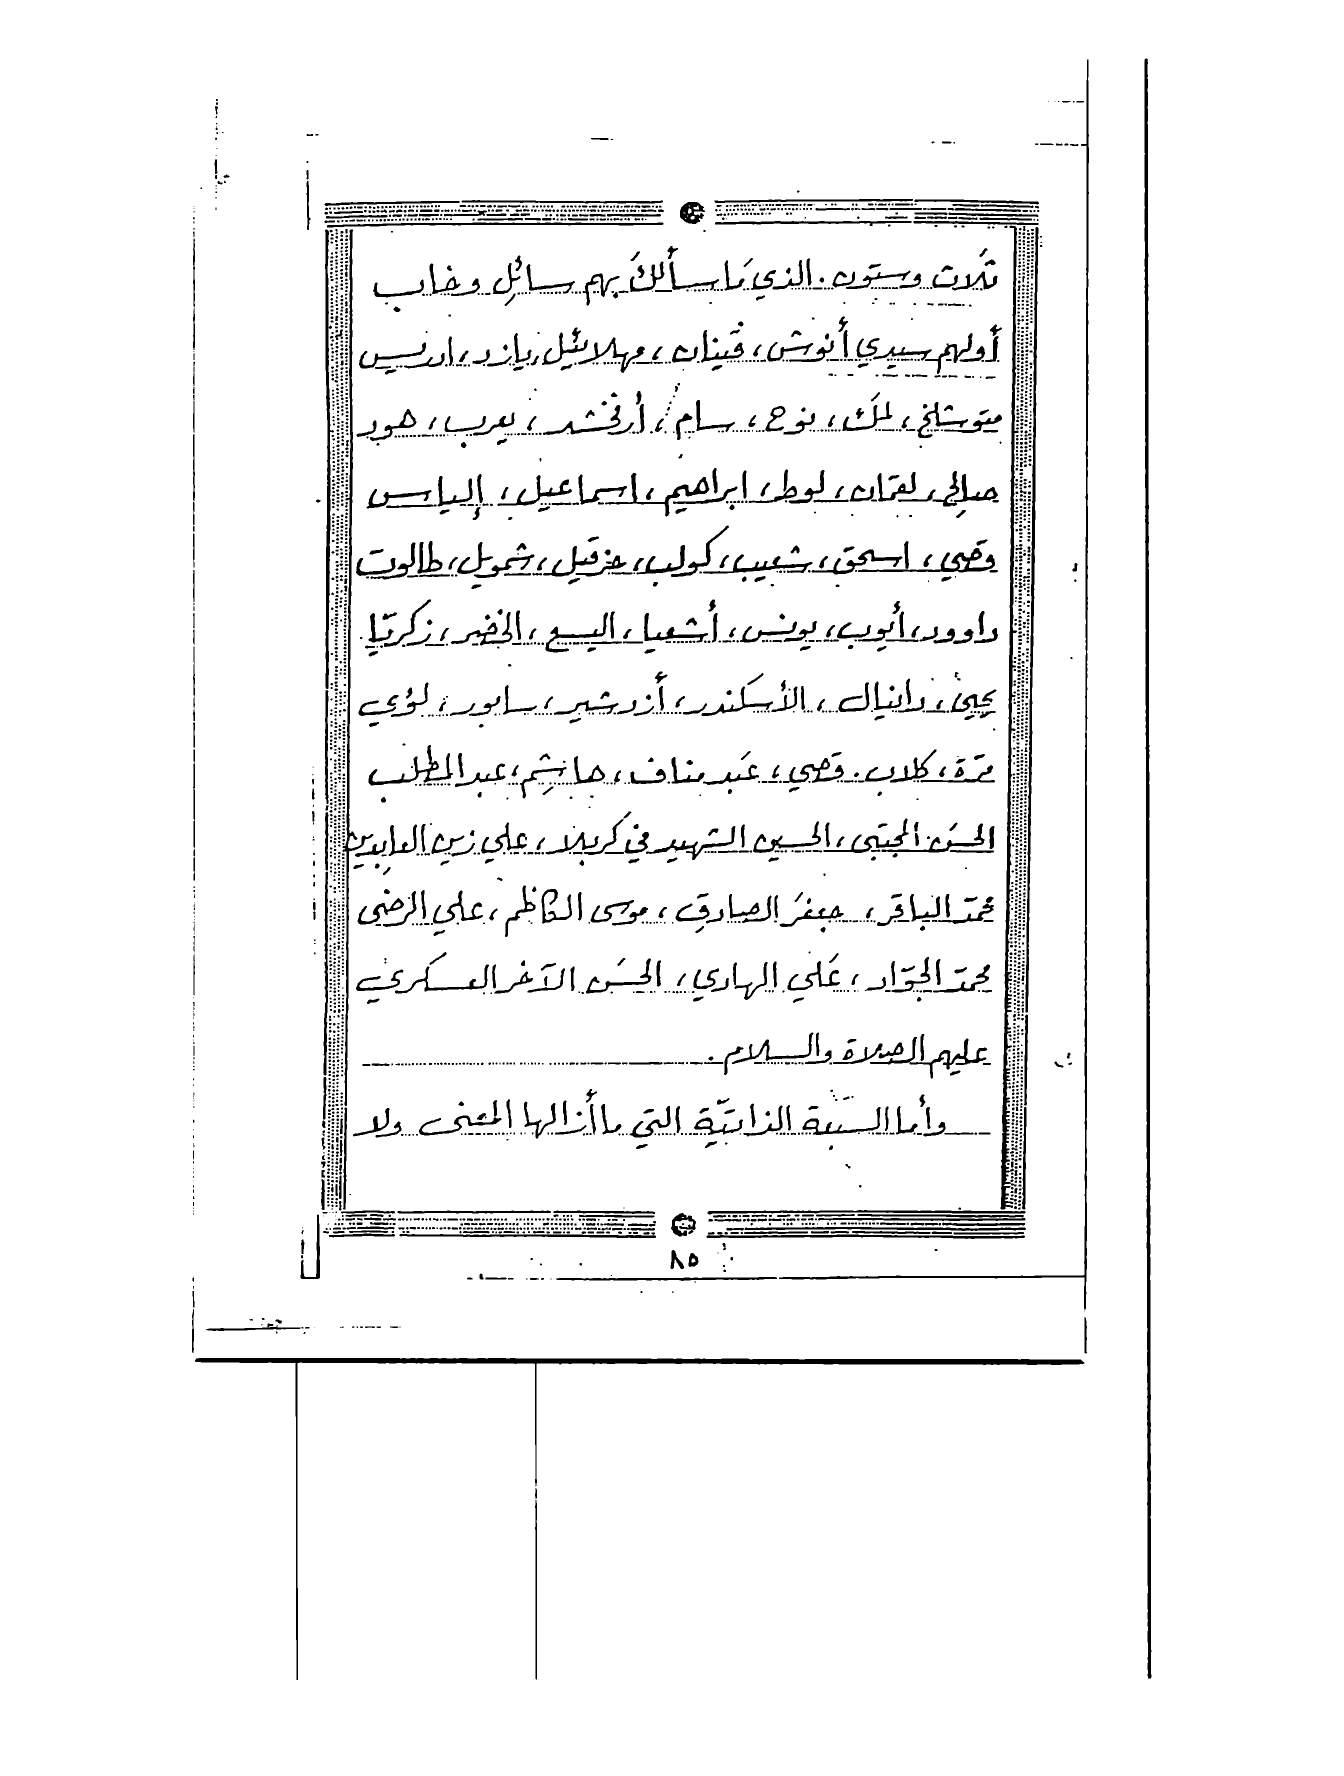 ثَلاث وستون. الذي مَا سأَلكَ بهم سائِل وخاب
أولهم سيدي أنوش، قَينان، مهلائيل، يازد، ادريس
متوشلخ، لمَك، نوح، سام، أرفخشد، يعرب، هود
صالِح، لقمَان، لوط، ابراهيم، اسماعيل، إلياس
قصَي، اسحق، شعَيب، كولب، حزقيل، شمويل، طالوت
داوود، أيوب، يونس، أشعيا، اليسع، الخضِر، زكريّا
يحيىَ، دانيال، الأسكندر، أزدشير، سابور، لؤي
مرّة، كلاب. قصَي، عَبد مناف، هاشِم، عبد المطلب
الحسَن المجتبى، الحسين الشهيد في كربلا، علي زين العابدين
محمدّ الباقر، جعفَر الصادق، موسى الكاظم، علي الرضى
محمدّ الجوّاد، عَلي الهادي، الحسَن الآخر العسكري
عليهم الصلاة والسلام.
وأما السَبعة الذاتيّة التي ما أزالها المعنى ولا
٨٥